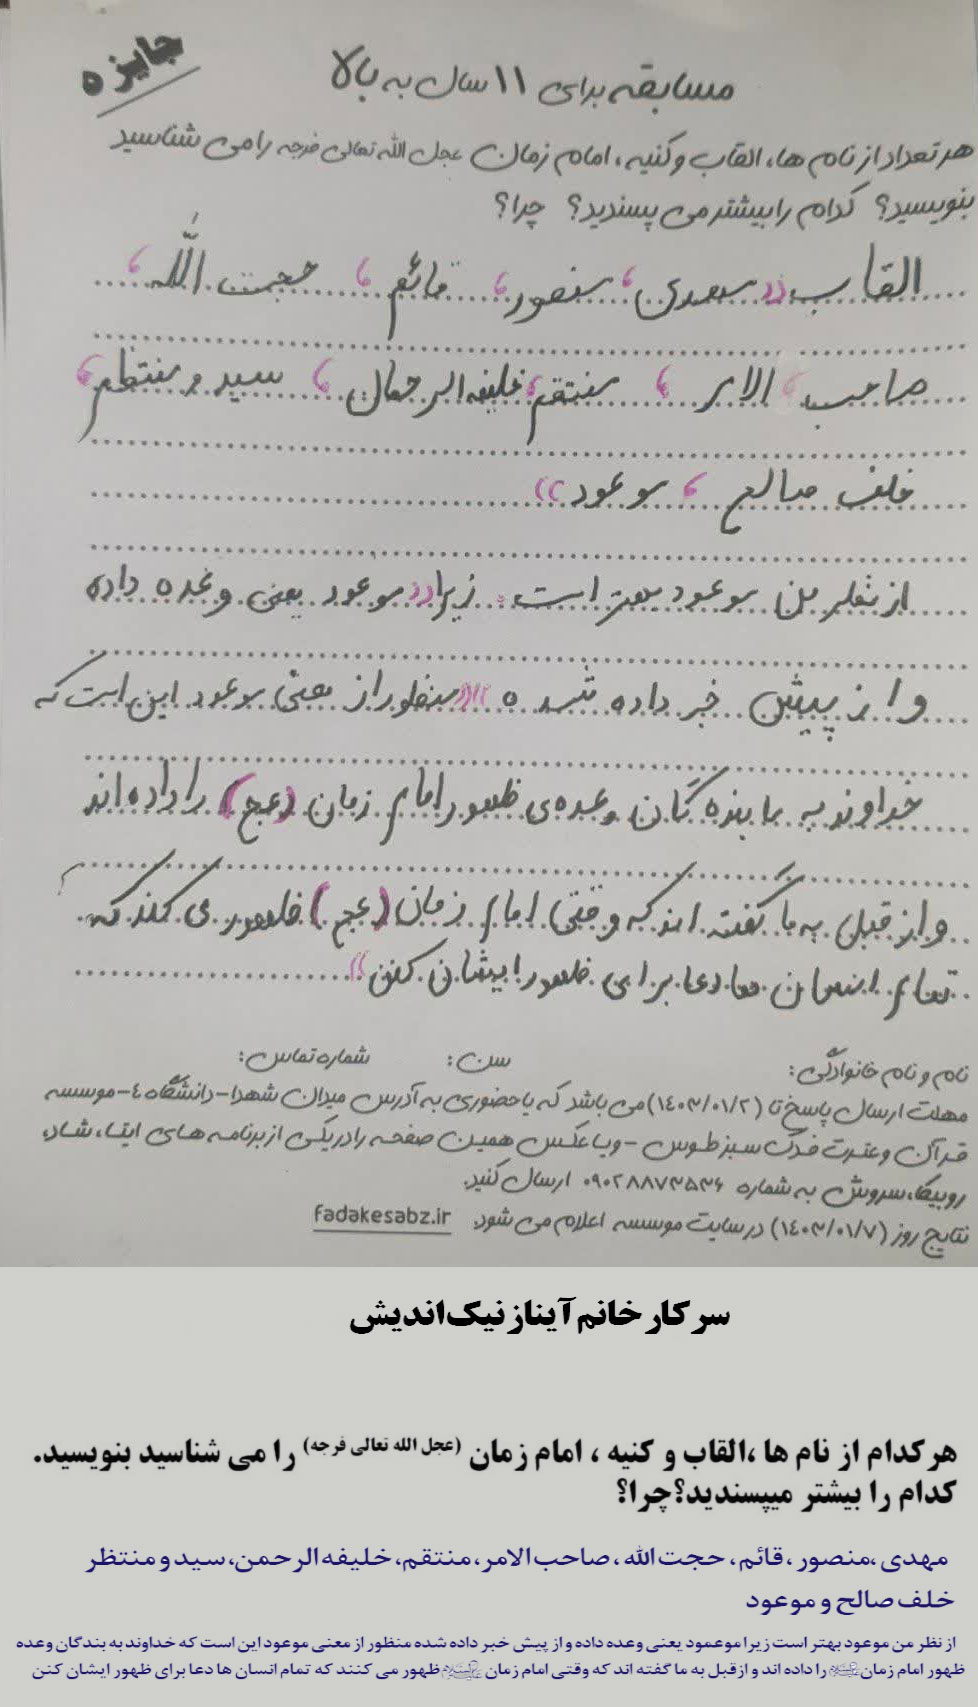 جایزه
مسابقه برای ۱۱ سال به بالا
هر تعداد از نام ها، القاب و کنیه، امام زمان عجل الله تعالی فرجه را می شناسید
بنویسید؟ کدام را بیشتر می پسندید؟ چرا؟
القاب: مهدی، منصور، قائم، حجت اللّه،
صاحب الامر، منتقم، خلیفه الرحمان، سید و منتظر،
خلف صالح، موعود))
از نظر من موعود بهتر است. زیرا((موعود یعنی وعده داده
و از پیش خبر داده شده))((منظور از معنی موعود این است که
خداوند به ما بنده گان وعده ی ظهور امام زمان (عج) را داده اند
و از قبل به ما گفته اند که وقتی امام زمان (عج) ظهور می کنند که
تمام انسان ها دعا برای ظهور ایشان کنن))
نام و نام خانوادگی: سن: شماره تماس:
مهلت ارسال پاسخ تا (۱۴۰۳/۰۱/۲) می باشد که با حضوری به آدرس میدان شهدا-دانشگاه ۴-موسسه
قرآن و عترت فدک سبز طوس - و یا عکس همین صفحه را در یکی از برنامه های ایتا، شاد،
روبیکا، سروش به شماره ۰۹۰۲۸۸۷۳۵۳۶ ارسال کنید.
نتایج روز (۱۴۰۳/۰۱/۷) در سایت موسسه اعلام می شود. fadakesabz.ir
سرکار خانم آیناز نیک‌اندیش
هرکدام از نام ها ،القاب و کنیه ، امام زمان (عجل الله تعالی فرجه) را می شناسید بنویسید.
کدام را بیشتر میپسندید؟چرا؟
مهدی ،منصور ،قائم، حجت الله ،صاحب الامر،منتقم، خلیفه الرحمن،سید و منتظر
خلف صالح و موعود
از نظر من موعود بهتر است زیرا موعمود یعنی وعده داده و از پیش خبر داده شده منظور از معنی موعود این است که خداوند به بندگان وعده
ظهور امام زمان را داده اند و ازقبل به ما گفته اند که وقتی امام زمان ظهور می کنند که تمام انسان ها دعا برای ظهور ایشان کنن